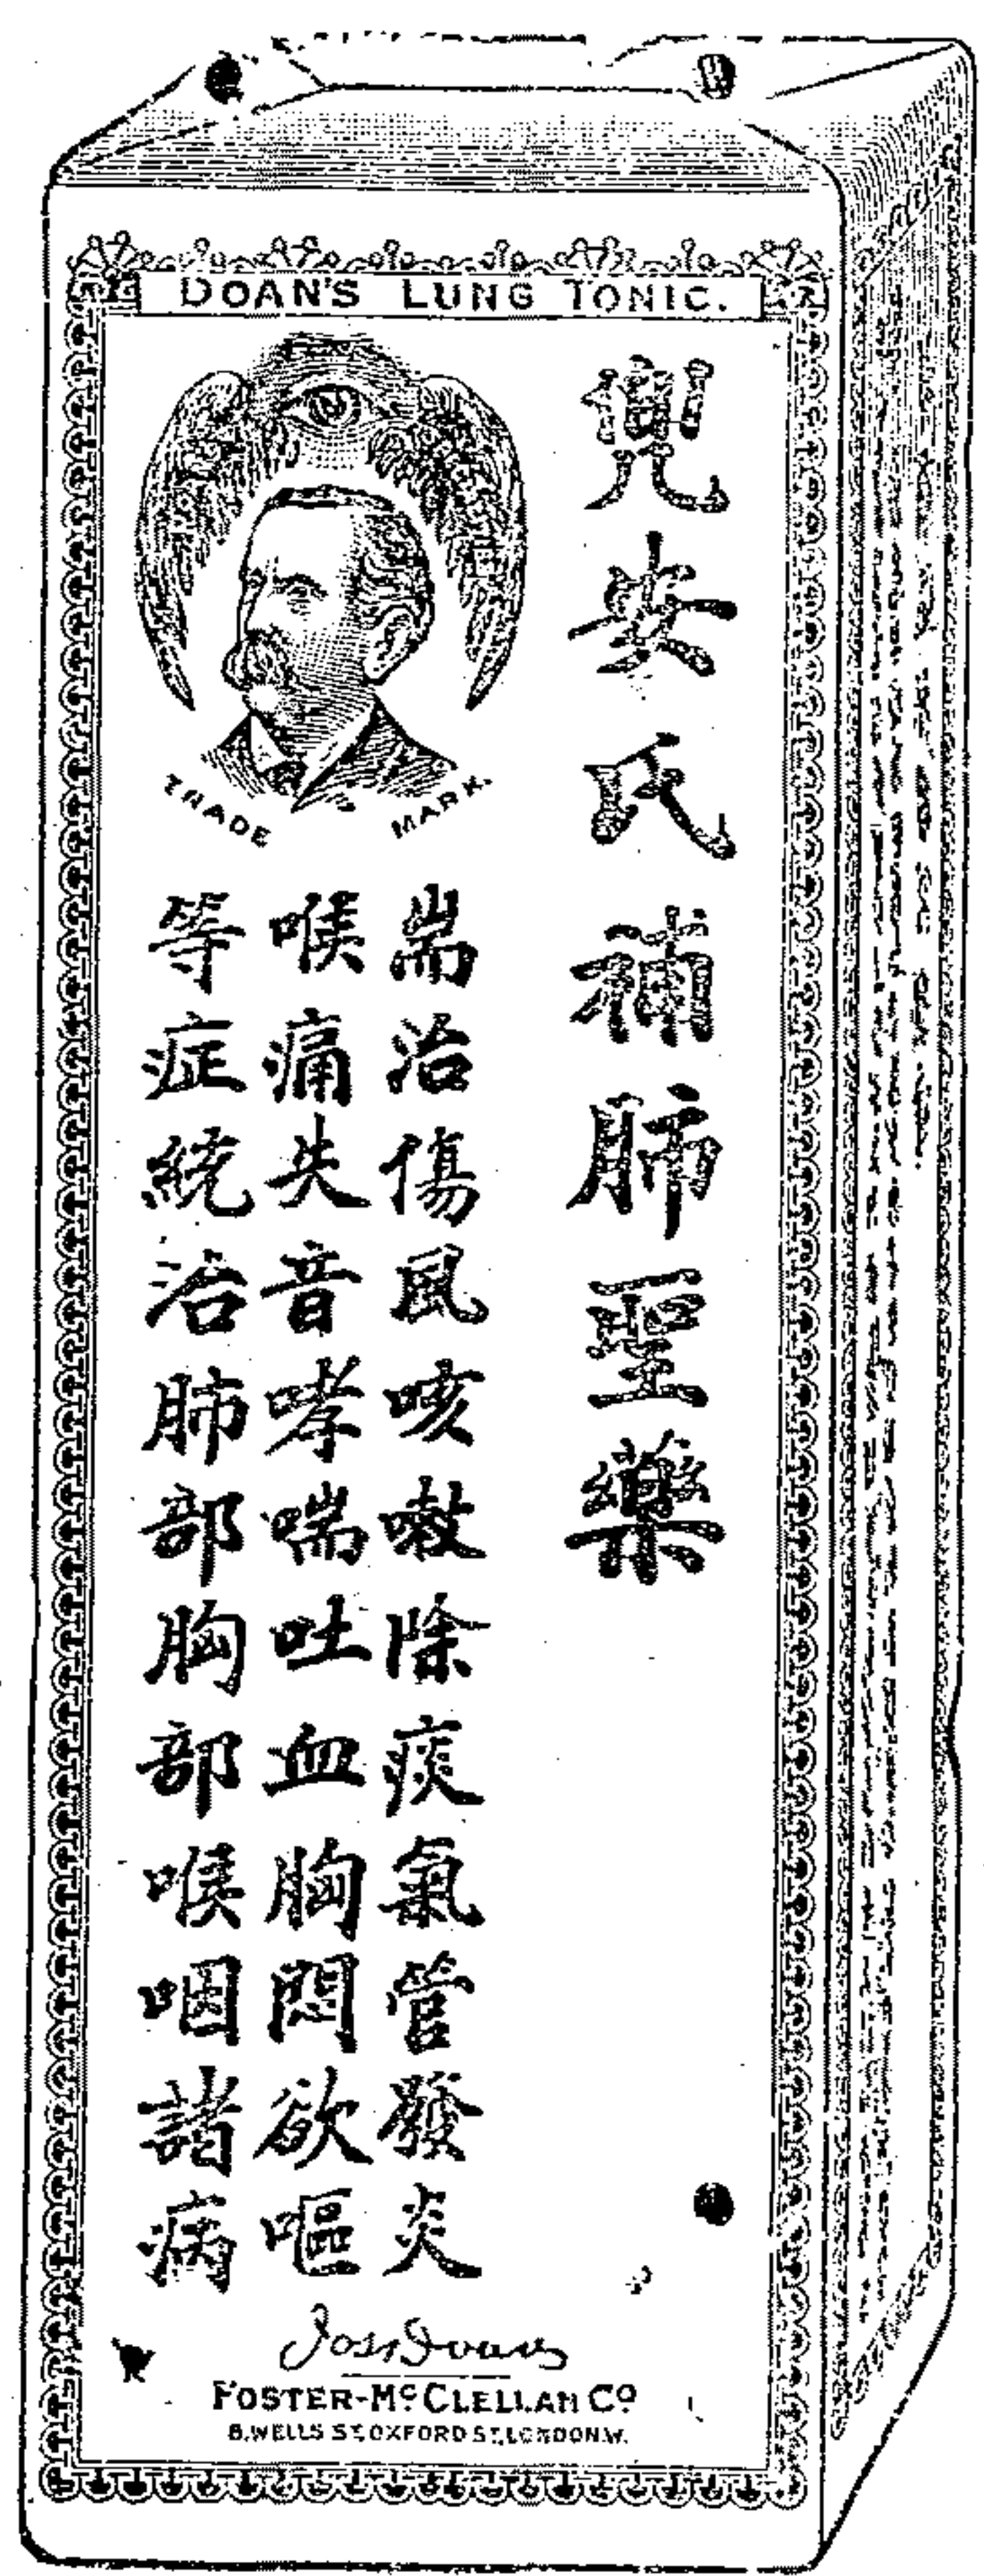 DOAN'S LUNG TONIC.
兜安氏補肺聖藥
TRADE MARK.
耑治傷風咳嗽除痰氣管發炎
喉痛失音哮喘吐血胸悶欲嘔
等症統治肺部胸部喉咽諸病
FOSTER-McCLELLAN Co
8, WELLS ST. OXFORD ST., LONDON. W.